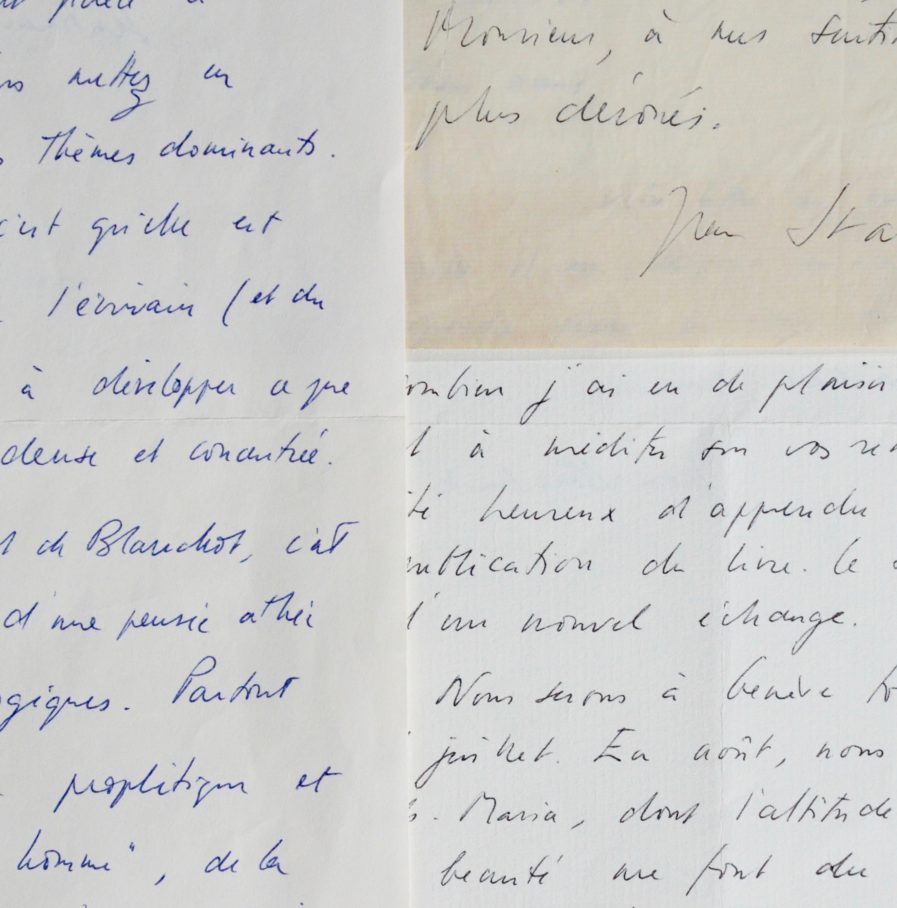 mettez en
thèmes dominants.
c'est qu'elle est
l'écrivain (et du
à développer ce que
dense et concentrée.
de Blanchot, c'est
d'une pensée athée
Partout
prophétique et
homme", de la
Monsieur, à mes
plus dévoués.
Jean Sta
j'ai eu de plaisir
à méditer sur vos
heureux d'apprendre
du livre. Le
un nouvel échange.
Nous serons à Genève
juillet. En août, nous
Maria, dont l'altitude
beauté me font du